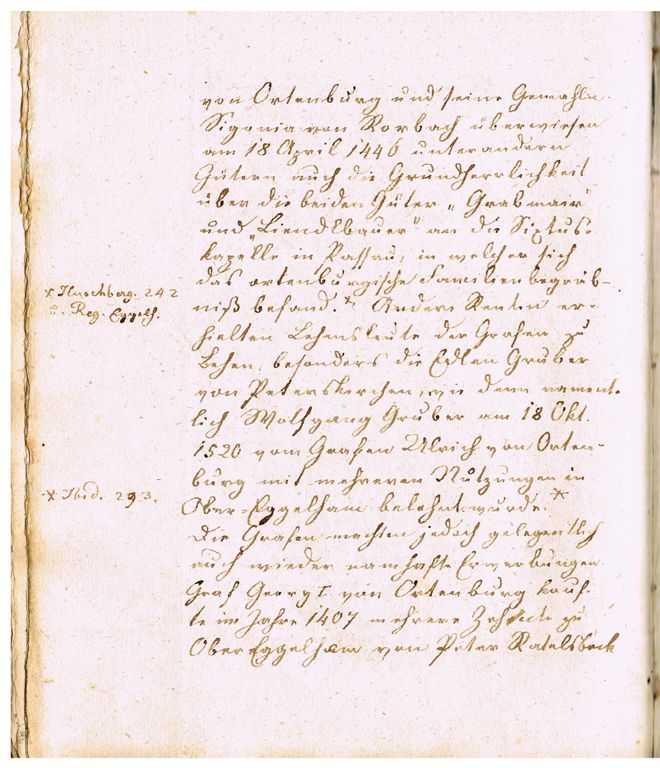 von Ortenburg und seine Gemahlin
Sigonia von Rorbach überwiesen
am 18 April 1446 unter andern
Gütern auch die Grundherrlichkeit
über die beiden Güter „Grabmair"
und „Liendlbauer" an die Sixtus-
kapelle in Passau, in welcher sich
das ortenburgische Familienbegräb-
niß befand.* Andere Renten er-
hielten Lehensleute der Grafen zu
Lehen, besonders die Edlen Gruber
von Peterskirchen, wie denn nament-
lich Wolfgang Gruber am 18 Okt.
1520 vom Grafen Ulrich von Orten-
burg mit mehreren Nutzungen in
Ober-Eggelham belehnt wurde.*
Die Grafen machten jedoch gelegentlich
auch wieder namhafte Erwerbungen.
Graf Georg I von Ortenburg kauf-
te im Jahre 1407 mehrere Zehente zu
Ober Eggelham von Peter Ratelsbeck
* Huschberg. 242
Reg. Eggelh.
* Ibid. 293.